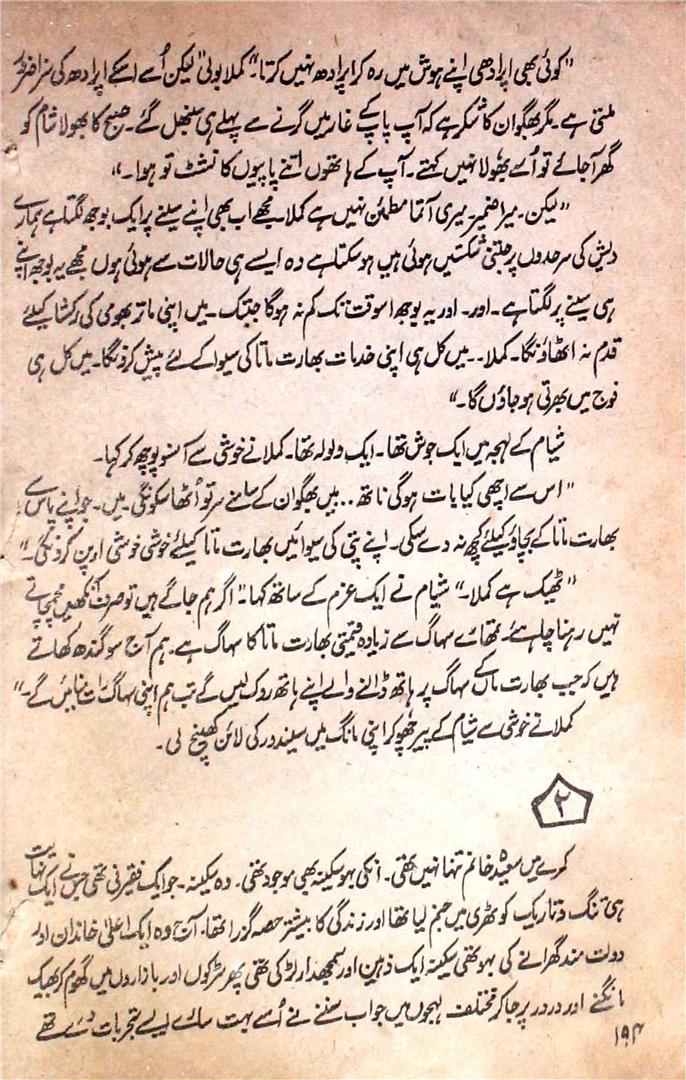 "کوئی بھی اپرادھی اپنے ہوش میں رہ کر اپرادھ نہیں کرتا۔" کملا بولی "لیکن اُسے اسکے اپرادھ کی سزا ضرور
ملتی ہے۔ مگر بھگوان کا شکر ہے کہ آپ پاپ کے غار میں گرنے سے پہلے ہی سنبھل گئے۔ صبح کا بھولا شام کو
گھر آ جائے تو اُسے بھُولا نہیں کہتے۔ آپ کے ہاتھوں اتنے پاپیوں کا نشٹ تو ہوا۔"
"لیکن۔ میرا ضمیر۔ میری آتما مطمئن نہیں ہے کملا۔ مجھے اب بھی اپنے سینے پر ایک بوجھ لگتا ہے ہمارے
دیش کی سرحدوں پر جتنی شکستیں ہوئی ہیں ہو سکتا ہے وہ ایسے ہی حالات سے ہوئی ہوں مجھے یہ بوجھ اپنے
ہی سینے پر لگتا ہے۔ اور۔ اور یہ بوجھ اسوقت تک کم نہ ہوگا جبتک۔ میں اپنی ماتر بھومی کی رکشا کیلئے
قدم نہ اٹھاؤنگا۔ کملا۔۔ میں کل ہی اپنی خدمات بھارت ماتا کی سیوا کے لئے پیش کردونگا۔ میں کل ہی
فوج میں بھرتی ہو جاؤں گا۔"
شیام کے لہجہ میں ایک جوش تھا۔ ایک ولولہ تھا۔ کملا نے خوشی سے آنسو پوچھ کر کہا۔
"اس سے اچھی کیا بات ہوگی ناتھ ... میں بھگوان کے سامنے سر تو اُٹھا سکونگی۔ میں۔ جو اپنے پاس سے
بھارت ماتا کے بچاؤ کیلئے کچھ نہ دے سکی۔ اپنے پتی کی سیوائیں بھارت ماتا کیلئے خوشی خوشی ارپن کردونگی۔"
"ٹھیک ہے کملا۔" شیام نے ایک عزم کے ساتھ کہا۔ "اگر ہم جاگے ہیں تو صرف آنکھیں مچمچاتے
نہیں رہنا چاہئے۔ تمہارے سہاگ سے زیادہ قیمتی بھارت ماتا کا سہاگ ہے۔ ہم آج سوگندھ کھاتے
ہیں کہ جب بھارت ماں کے سہاگ پر ہاتھ ڈالنے والے اپنے ہاتھ روک لیں گے تب ہم اپنی سہاگ رات منائیں گے۔"
کملا نے خوشی سے شیام کے پیر چھو کر اپنی مانگ میں سیندور کی لائن کھینچ لی۔
۲
کمرے میں سعیدہ خانم تنہا نہیں تھی۔ انکی بہو سکینہ بھی موجود تھی۔ وہ سکینہ۔ جو ایک فقیرنی تھی جس نے ایک نہایت
ہی تنگ و تاریک کوٹھری میں جنم لیا تھا اور زندگی کا بیشتر حصہ گزرا تھا۔ آج وہ ایک اعلیٰ خاندان اور
دولت مند گھرانے کی بہو تھی سکینہ ایک ذہین اور سمجھدار لڑکی تھی پھر سڑکوں اور بازاروں میں گھوم کر بھیک
مانگنے اور در در پر جا کر مختلف لہجوں میں جواب سننے نے اُسے بہت سارے ایسے تجربات دئے تھے
۱۹۴